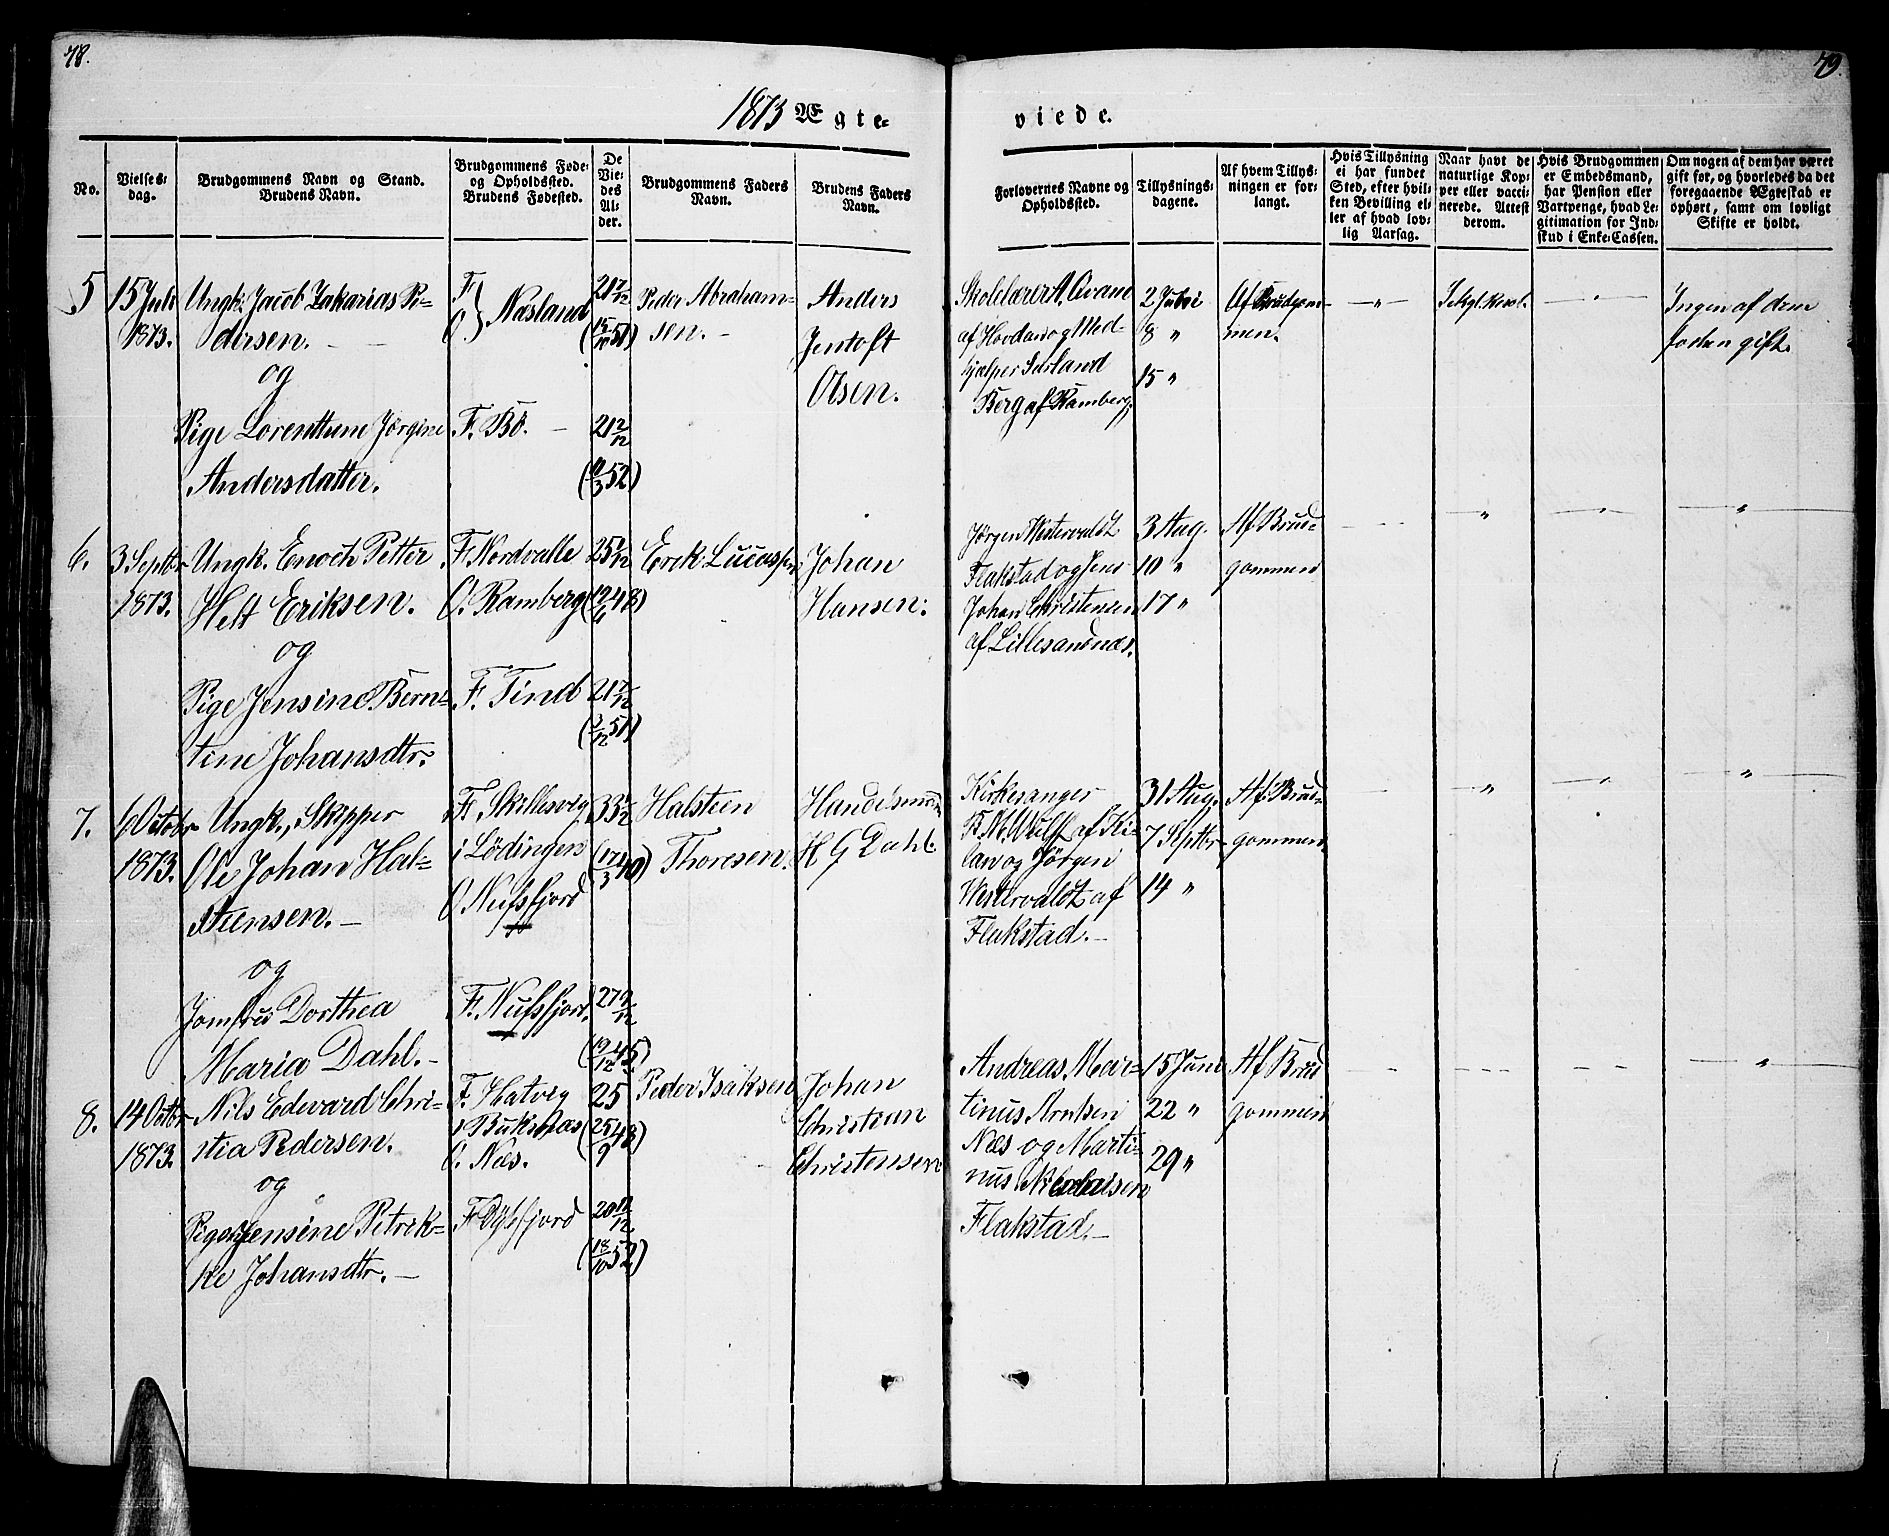 78.
79.
1873 Ægte-
viede.
No.
Vielses-
dag.
Brudgommens Navn og Stand.
Brudens Navn.
Brudgommens Føde-
og Opholdssted.
Brudens Fødested.
De
Vie-
des
Al-
der.
Brudgommens Faders
Navn.
Brudens Faders
Navn.
Forlovernes Navne og
Opholdssted.
Tillysnings-
dagene.
Af hvem Tillys-
ningen er for-
langt.
Hvis Tillysning
ei har fundet
Sted, efter hvil-
ken Bevilling el-
ler af hvad lov-
lig Aarsag.
Naar havt de
naturlige Kop-
per eller vacci-
nerede. Attest
derom.
Hvis Brudgommen
er Embedsmand,
har Pension eller
Vartpenge, hvad Le-
gitimation for Ind-
skud i Enke-Cassen.
Om nogen af dem har været
gift før, og hvorledes da det
foregaaende Ægteskab er
ophørt, samt om lovligt
Skifte er holdt.
5
15 Juli
1873.
Ungk. Jacob Zakarias Pe-
dersen.
og
Pige Lorenttine Jørgine
Andersdatter.
F.
O. } Næsland
F. Bö.
21 7/12
(15/10 51)
21 2/12
(9/3 52)
Peder Abraham-
sen.
Anders
Jentoft
Olsen.
Skolelærer A. Qvane
af Hovdan og Med-
hjælper
Berg af Ramberg.
2 Juli
8 "
15 "
Af Brudgom-
men.
Ingen af dem
før gift.
6.
3 Septbr
1873.
Ungk. Enoch Petter
Helt Eriksen.
og
Pige Jensine Bern-
tine Johansdtr.
F. Nordvalle
O. Ramberg
F. Tind
25
(12/6 48)
21 7/12
51)
Erik Lucassen
Johan
Hansen.
Jørgen Westervaldt
Flakstad og Jens
Johan Christensen
af Lillesandnæs.
3 Aug.
10 "
17 "
Af Brud-
gommen
7.
6 Octobr
1873.
Ungk., Skipper
Ole Johan Hal-
steensen.
og
Jomfru Dorthea
Maria Dahl.
F. Skillesvig
i Lödingen
O. Nussfjord
F. Nussfjord.
33
(17/3 40)
27 9/12
(19/12 45)
Halsteen
Thoresen.
Handelsmand
H G Dahl.
Kirkesanger
Wulff af Ki-
lan og Jørgen
Westervaldt af
Flakstad.
31 Aug.
7 Septbr
14 "
Af Brud-
gommen.
8.
14 Octbr
1873.
Nils Edevard Chri-
stia Pedersen.
og
Pige Jensine Petrik-
ke Johansdtr.
F. Hatvig
i Buksnæs
O. Næs.
F.
25
(25/9 48)
20 11/12
(18/10 52)
Peder Isaksen
Johan
Christian
Christensen
Andreas Mar-
tinus Arntsen
Næs og Marti-
nus Nicolaisen
Flakstad.
15 Juni
22 "
29 "
Af Brud
gommen